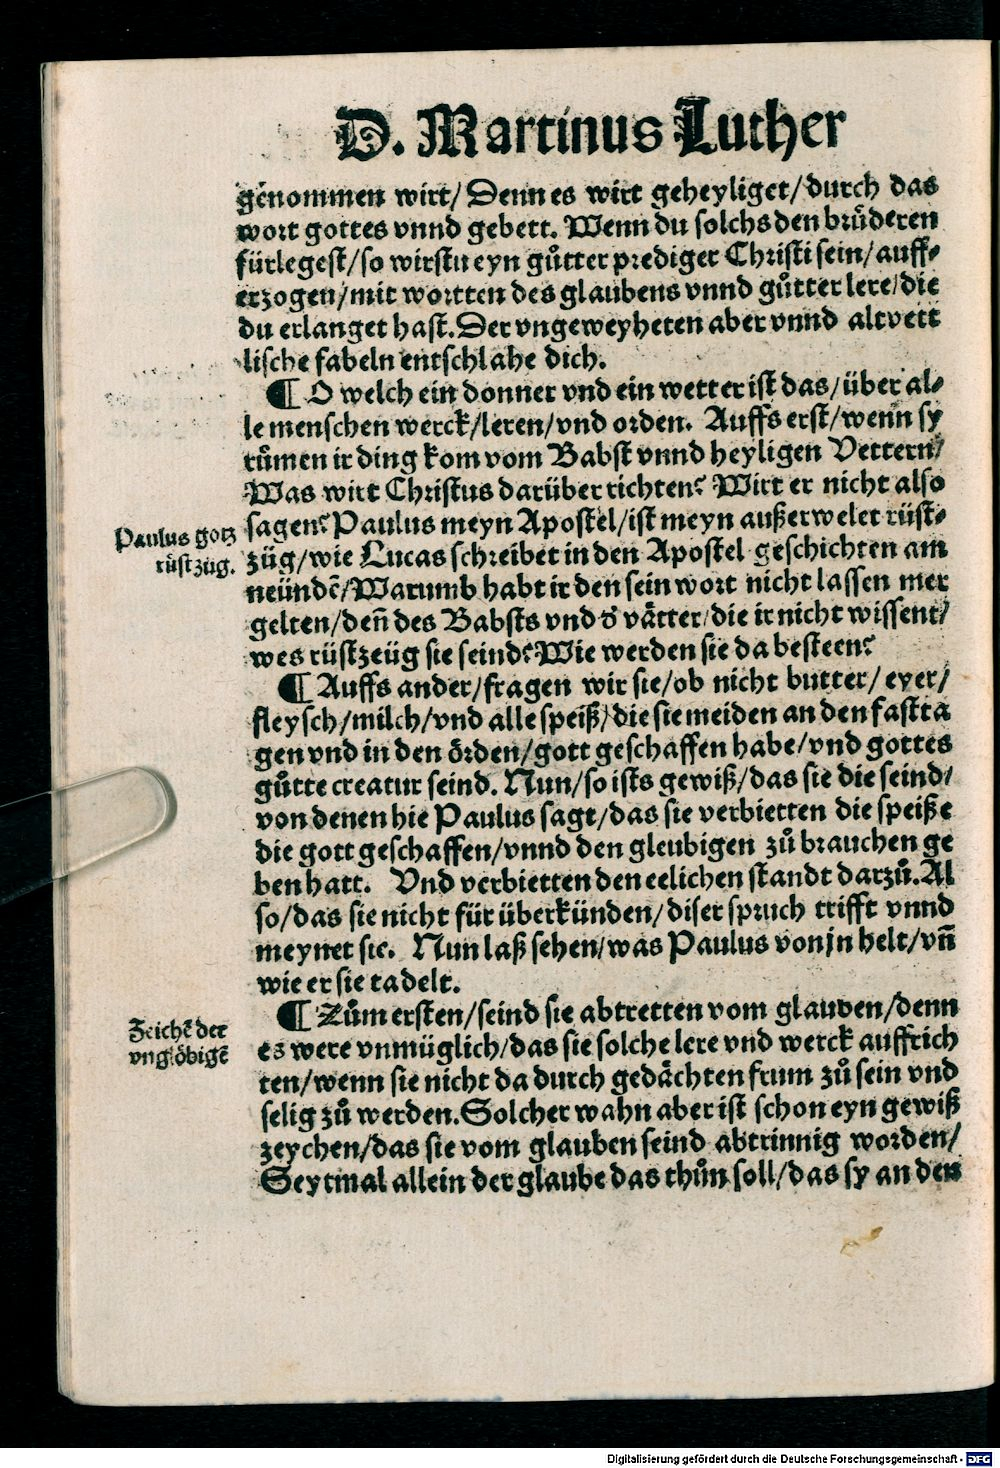 D. Martinus Luther
genommen wirt/ Denn es wirt geheyliget/durch das
wort gottes vnnd gebett. Wenn du solchs den brüderen
fürlegest/so wirstu eyn gůtter prediger Christi sein/auff⸗
erzogen/mit wortten des glaubens vnnd gůtter lere/die
du erlanget hast. Der vngeweyheten aber vnnd altvett
lische fabeln entschlahe dich.
¶ O welch ein donner vnd ein wetter ist das/über al⸗
le menschen werck/leren/vnd orden. Auffs erst/wenn sy
růmen ir ding kom vom Babst vnnd heyligen Vettern/
Was wirt Christus darüber richten? Wirt er nicht also
sagen? Paulus meyn Apostel/ist meyn außerwelet rüst⸗
Paulus gotz
rüstzüg.
züg/wie Lucas schreibet in den Apostel geschichten am
neündẽ/Warumb habt ir den sein wort nicht lassen mer
gelten/deñ des Babsts vnd ď vätter/die ir nicht wissent/
wes rüstzeüg sie seind? Wie werden sie da besteen?
¶ Auffs ander/fragen wir sie/ob nicht butter/ eyer/
fleysch/milch/vnd alle speiß/die sie meiden an den fastta
gen vnd in den örden/gott geschaffen habe/vnd gottes
gůtte creatur seind. Nun/so ists gewiß/das sie die seind/
von denen hie Paulus sagt/das sie verbietten die speiße
die gott geschaffen/vnnd den gleubigen zů brauchen ge
ben hatt. Vnd verbietten den eelichen standt darzů. Al
so/das sie nicht für überkünden/diser spruch trifft vnnd
meynet sie. Nun laß sehen/was Paulus von jn helt/vñ
wie er sie tadelt.
¶ Zům ersten/seind sie abtretten vom glauben/denn
Zeichẽ der
vnglöbigẽ
es were vnmüglich/das sie solche lere vnd werck auffrich
ten/wenn sie nicht da durch gedächten frum zů sein vnd
selig zů werden. Solcher wahn aber ist schon eyn gewiß
zeychen/das sie vom glauben seind abtrinnig worden/
Seytmal allein der glaube das thůn soll/das sy an den
Digitalisierung gefördert durch die Deutsche Forschungsgemeinschaft - DFG